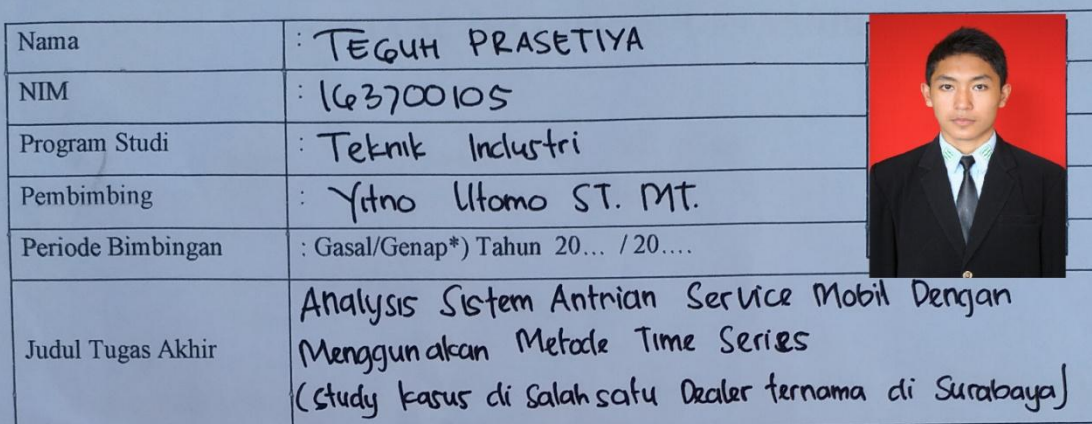 Nama : TEGUH PRASETIYA
NIM : 163700105
Program Studi : Teknik Industri
Pembimbing : Yitno Utomo ST. MT.
Periode Bimbingan : Gasal/Genap*) Tahun 20... / 20....
Analysis Sistem Antrian Service Mobil Dengan
Judul Tugas Akhir Menggunakan Metode Time Series
(study kasus di Salah satu Dealer ternama di Surabaya)